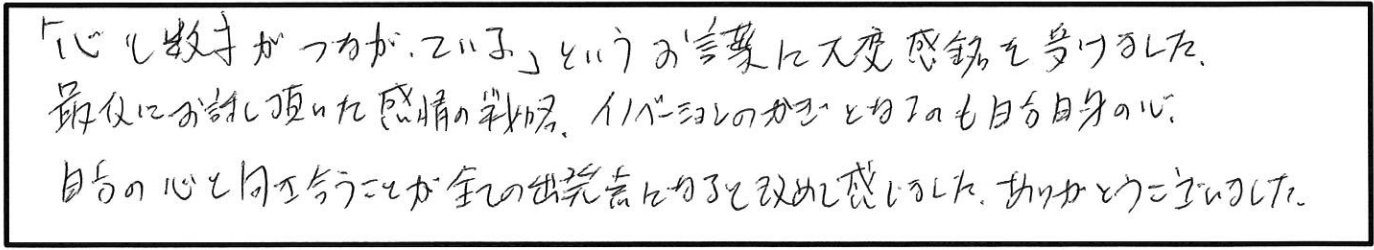 「心と数字がつながっている」というお言葉に大変感銘を受けました。
最後にお話し頂いた感情の戦略、イノベーションのかぎとなるのも自分自身の心。
自分の心と向き合うことが全ての出発点になると改めて感じました。ありがとうございました。